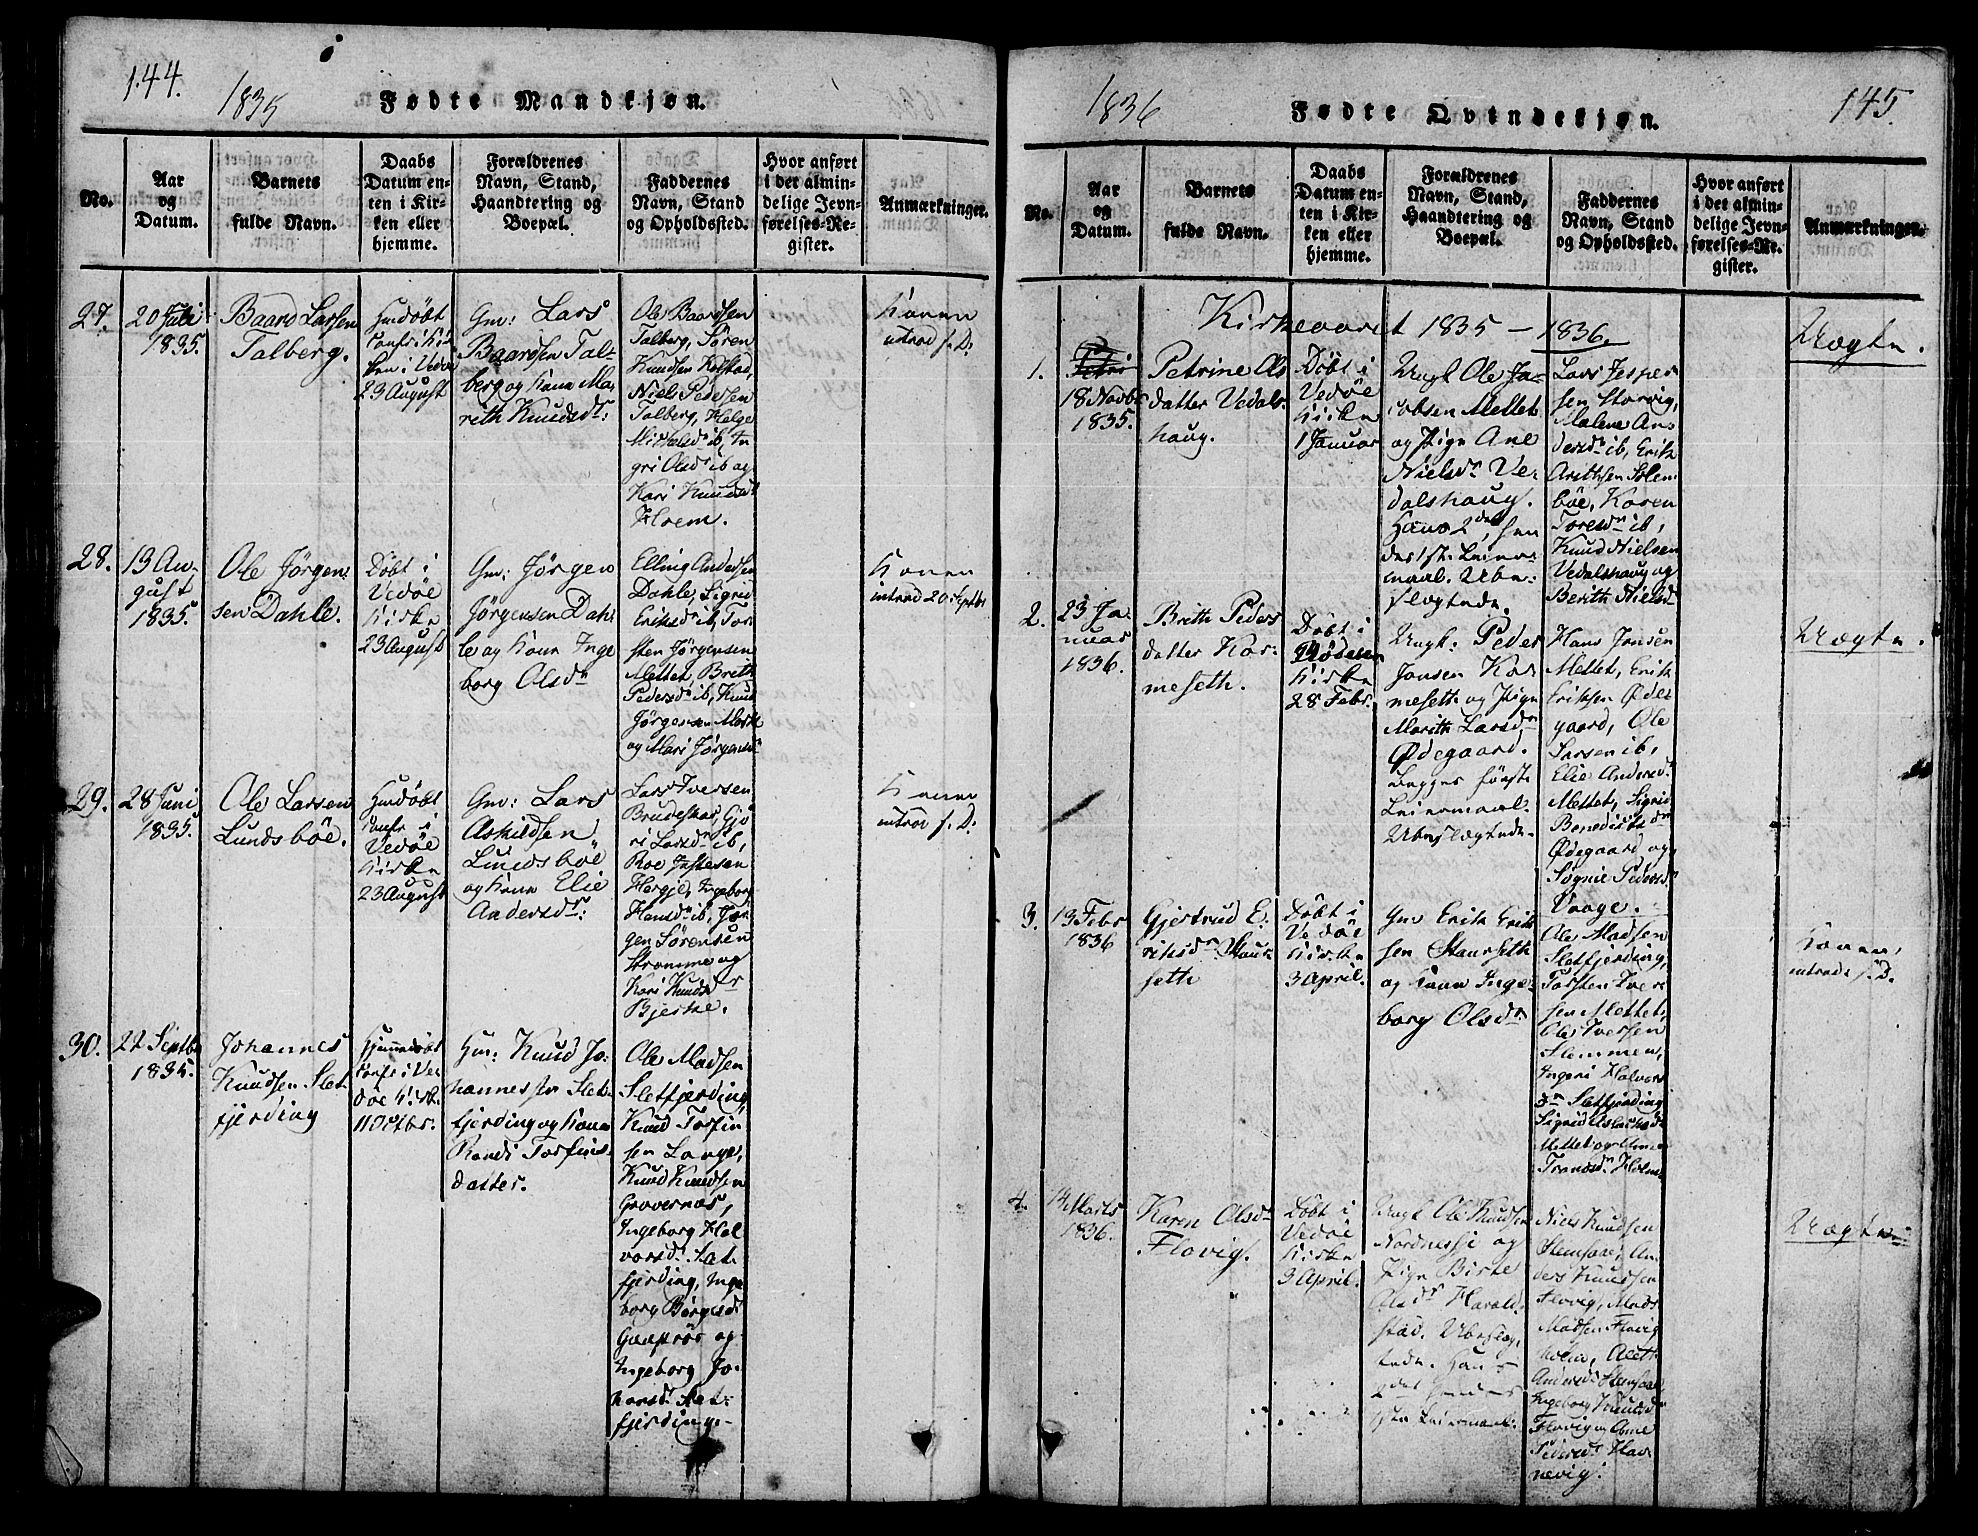 144.
1835
Fødte Mandkjøn.
No.
Aar
og
Datum.
Barnets
fulde Navn.
Daabs
Datum en-
ten i Kir-
ken eller
hjemme.
Forældrenes
Navn, Stand,
Haandtering og
Boepæl.
Faddernes
Navn, Stand
og Opholdssted.
Hvor anført
i det almin-
delige Jevn-
førelses-Re-
gister.
Anmærkninger.
27.
20 Juli
1835.
Baard Larsen
Talberg.
Hmdøbt
Confr: i Kir
ken i Vedøe
23 August
Gm: Lars
Baardsen Tal-
berg og Kone Ma-
reth Knudsdr:
Ole Baardsen
Talberg, Sören
Knudsen Kolstad,
Niels Pedersen
Talberg, Helge
ib, In
gri Olsdr ib og
Kari Knudsdr
Hoem.
Konen
introd s. D.
28.
13 Au-
gust
1835.
Ole Jörgen
sen Dahle.
Döbt i
Vedøe
Kirke
23 August
Gm: Jörgen
Jörgensen Dah-
le og Kone Inge
borg Olsdr
Elling Andersen
Dahle, Sigrid
Eriksdr ib, Tor
sten Jörgensen
Mettet, Brith
Pedersdr ib, Knud
Jörgensen Mork
og Mari Jörgensdr
Konen
introd 20 Septbr
29.
28 Juni
1835.
Ole Larsen
Lundsböe.
Hmdøbt
Confr i
Vedöe
Kirke
23 August
Gm: Lars
Askildsen
Lundsböe
og Kone Elie
Andersdr:
Lars Iversen
Brudeskar, Gjö
ri Larsdr ib,
Roe Jestesen
Hergje, Ingeborg
Hansdr ib, Jör
gen Sörensen
Stromme og
Kari Knudsdr
Bjerke.
Konen
introd s. D.
30.
22 Septbr
1835.
Johannes
Knudsen Slet
fjerding
Hjemmedøbt
Confr i Ve
döe Kirk.
11 Octbr.
Gm: Knud Jo-
hannessen Slet-
fjerding og Kone
Randi Torfins-
datter.
Ole Madsen
Sletfjerding,
Knud Torfin
sen Lange,
Knud Knudsen
Grovernæs,
Ingeborg Hal
vorsdr. Slet-
fjerding, Inge
borg Börgesdr
og
Ingeborg Jo-
hansdr Slet-
fjerding.
1836
Fødte Qvindekjøn.
145.
No.
Aar
og
Datum.
Barnets
fulde Navn.
Daabs
Datum en-
ten i Kir-
ken eller
hjemme.
Forældrenes
Navn, Stand,
Haandtering og
Boepæl.
Faddernes
Navn, Stand
og Opholdssted.
Hvor anført
i det almin-
delige Jevn-
førelses-Re-
gister.
Anmærkninger.
Kirkeaaret 1835 – 1836.
Uægte.
1.
18 Novbr
1835.
Petrine Ols
datter Vedals-
haug.
Döbt i
Vedøe
Kirke
1 Januar
Ungk Ole Ja-
cobsen Mettet
og Pige Ane
Nielsdr Ve-
dalshaug.
Hans 2det, hen
des 1ste Leier-
maal. Ube-
slægtede.
Lars Jesper
sen Storvig,
Malene An-
dersdr ib, Erik
Solem
böe, Karen
Toresdr ib,
Knud Nielsen
Vedalshaug og
Berith Nielsdr
2.
23 Ja-
nuar
1836.
Brith Peders
datter Kor-
meseth.
Döbt i
Rödesen
Kirke
28 Febr.
Ungk: Peder
Jonsen Kor
meseth og Pige
Marith Larsdr
Ødegaard.
Begges förste
Leiermaal.
Ubeslægtede.
Hans Jonsen
Mettet, Erik
Eriksen Ødeg
gaard, Ole
Larsen ib,
Elie Andersdr
Mettet, Sigrid
Benedictsdr
Ødegaard og
Sögnie Pedersdr
Vaage.
Uægte.
3.
13 Febr
1836
Gjertrud E-
riksdr Staur-
seth
Döbt i
Vedøe
Kirke
3 April.
Gm Erik Erik
sen Staurseth
og Kone Inge-
borg Olsdr
Ole Madsen
Sletfjerding,
Torsten Iver
sen Mettet,
Ole Iversen
Slemmen,
Ingeri Halvors
dr Sletfjerding
Sigrid Aslachsdr
Mettet og
Trondsdr Holm
Konen
introd s. D.
4.
14 Marts
1836.
Karen Olsdr
Flovig.
Döbt i
Vedøe
Kirke
3 April.
Ungk Ole Knudsen
Nordnesje og
Pige Birte
Olsdr Harald-
stad. Ubeslæg
tede. Hans
2det hendes
1ste Leiermaal.
Niels Knudsen
An
ders Knudsen
Flovig, Mads
Madsen Flovig
holm, Aleth
Andersdr
Ingeborg Knudsdr
Flovig og
Pedersdr Hav
nevig.
Uægte